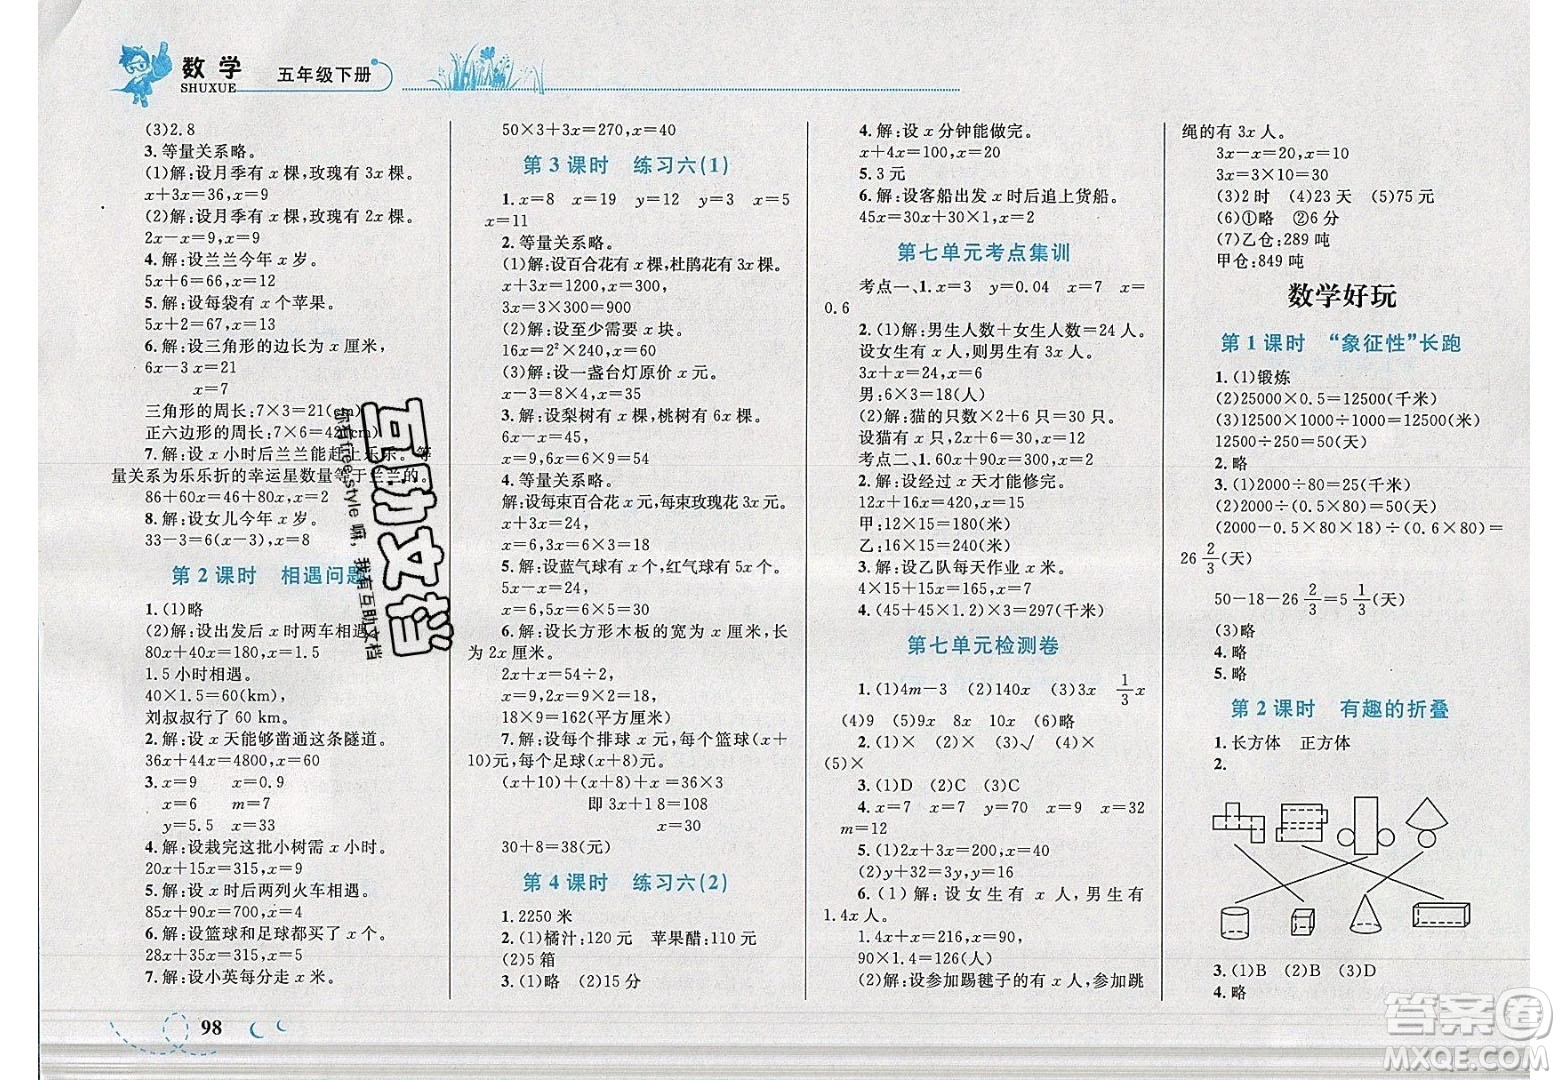 数学
SHUXUE
五年级下册
(3)2.8
3.等量关系略。
(1)解:设月季有 x 棵,玫瑰有 3x 棵。
x+3x=36,x=9
(2)解:设月季有 x 棵,玫瑰有 2x 棵。
2x-x=9,x=9
4.解:设兰兰今年 x 岁。
5x+6=12,x=6
5.解:设每袋有 x 个苹果。
5x+2=67,x=13
6.解:设三角形的边长为 x 厘米,
6x-3x=21
x=7
三角形的周长:7×3=21(cm)
正六边形的周长:7×6=42(cm)
7.解:设 x 小时后兰兰能赶上乐乐。等
量关系为乐乐折的幸运星数量等于兰兰的。
86+60x=46+80x,x=2
8.解:设女儿今年 x 岁。
33-3=6(x-3),x=8
第 2 课时 相遇问题
1.(1)略
(2)解:设出发后 x 时两车相遇。
80x+40x=180,x=1.5
1.5 小时相遇。
40×1.5=60(km),
刘叔叔行了 60 km。
2.解:设 x 天能够凿通这条隧道。
36x+44x=4800,x=60
3.x=9 x=0.9
x=6 m=7
y=5.5 x=33
4.解:设栽完这批小树需 x 小时。
20x+15x=315,x=9
5.解:设 x 时后两列火车相遇。
85x+90x=700,x=4
6.解:设篮球和足球都买了 x 个。
28x+35x=315,x=5
7.解:设小英每分走 x 米。
50×3+3x=270,x=40
第 3 课时 练习六(1)
1.x=8 x=19 y=12 y=3 x=5
x=11
2.等量关系略。
(1)解:设百合花有 x 棵,杜鹃花有 3x 棵。
x+3x=1200,x=300
3x=3×300=900
(2)解:设至少需要 x 块。
16x=20×2²×10,x=50
(3)解:设一盏台灯原价 x 元。
x-8=27,x=35
3.解:设梨树有 x 棵,桃树有 6x 棵。
6x-x=45,
x=9,6x=6×9=54
4.等量关系略。
解:设每束百合花 x 元,每束玫瑰花 3x 元。
x+3x=24,
x=6,3x=6×3=18
5.解:设蓝气球有 x 个,红气球有 6x 个。
6x-x=15,
x=3,6x=6×3=18
6.解:设长方形木板的宽为 x 厘米,长
为 2x 厘米。
2x+x=54÷2,
x=9,2x=18
18×9=162(平方厘米)
7.解:设每个排球 x 元,每个篮球(x+
10)元,每个足球(x+8)元。
(x+10)+(x+8)+x=36×3
即 3x+18=108
x=30
30+8=38(元)
第 4 课时 练习六(2)
1.2250 米
2.(1)橘汁:120 元 苹果醋:110 元
(2)5 箱
3.(1)略 (2)15 分
4.解:设 x 分钟能做完。
x+4x=100,x=20
5.3 元
6.解:设客船出发 x 时后追上货船。
45x=30x+30×1,x=2
第七单元考点集训
考点一、1.x=3 y=0.04 x=7 x=
0.6
2.(1)解:男生人数+女生人数=24 人。
设女生有 x 人,则男生有 3x 人。
3x+x=24,x=6
男:6×3=18(人)
(2)解:猫的只数×2+6=只数。
设猫有 x 只,2x+6=30,x=12
考点二、1.60x+54x=342,x=3
2.解:设经过 x 天才能修完。
12x+16x=420,x=15
甲:12×15=180(米)
乙:16×15=240(米)
3.解:设乙队每天作业 x 米。
4×15+4x=128,x=17
4.(45+45×1.2)×3=297(千米)
第七单元检测卷
1.(1)4m-3 (2)140x (3)3x 1/3 x
(4)9 9x 8x 10x (5)10x (6)略
2.(1)× (2)× (3)√ (4)×
(5)×
3.(1)D (2)C (3)C
4.x=7 x=7 y=70 x=9 x=32
m=12
5.(1)2x+x=120,x=40
(2)y+32=3y,y=16
6.(1)解:设女生有 x 人,男生有
1.4x 人。
1.4x+x=216,x=90
90×1.4=126(人)
(2)解:设参加踢毽子的有 x 人,参加跳
绳的有 3x 人。
3x-x=20,x=10
3x=3×10=30
(3)2 时 (4)23 天 (5)75 元
(6)①略 ②6 分
(7)乙仓:289 吨
甲仓:849 吨
数学好玩
第 1 课时 “象征性”长跑
1.(1)锻炼
(2)25000×0.5=12500(千米)
(3)12500×1000÷1000=12500(千米)
12500÷250=50(天)
2.略
3.(1)2000÷80=25(天)
(2)2000×2÷80=50(天)
(2000-0.5×80×18)÷(0.6×80)=
26 2/3(天)
50-18-26 2/3=5 1/3(天)
(3)略
4.略
5.略
第 2 课时 有趣的折叠
1.长方体 正方体
2.
3.(1)B (2)B (3)D
4.略
98
互助文档
你有free style 嘛，我有互助文档
答案圈
MXQE.COM